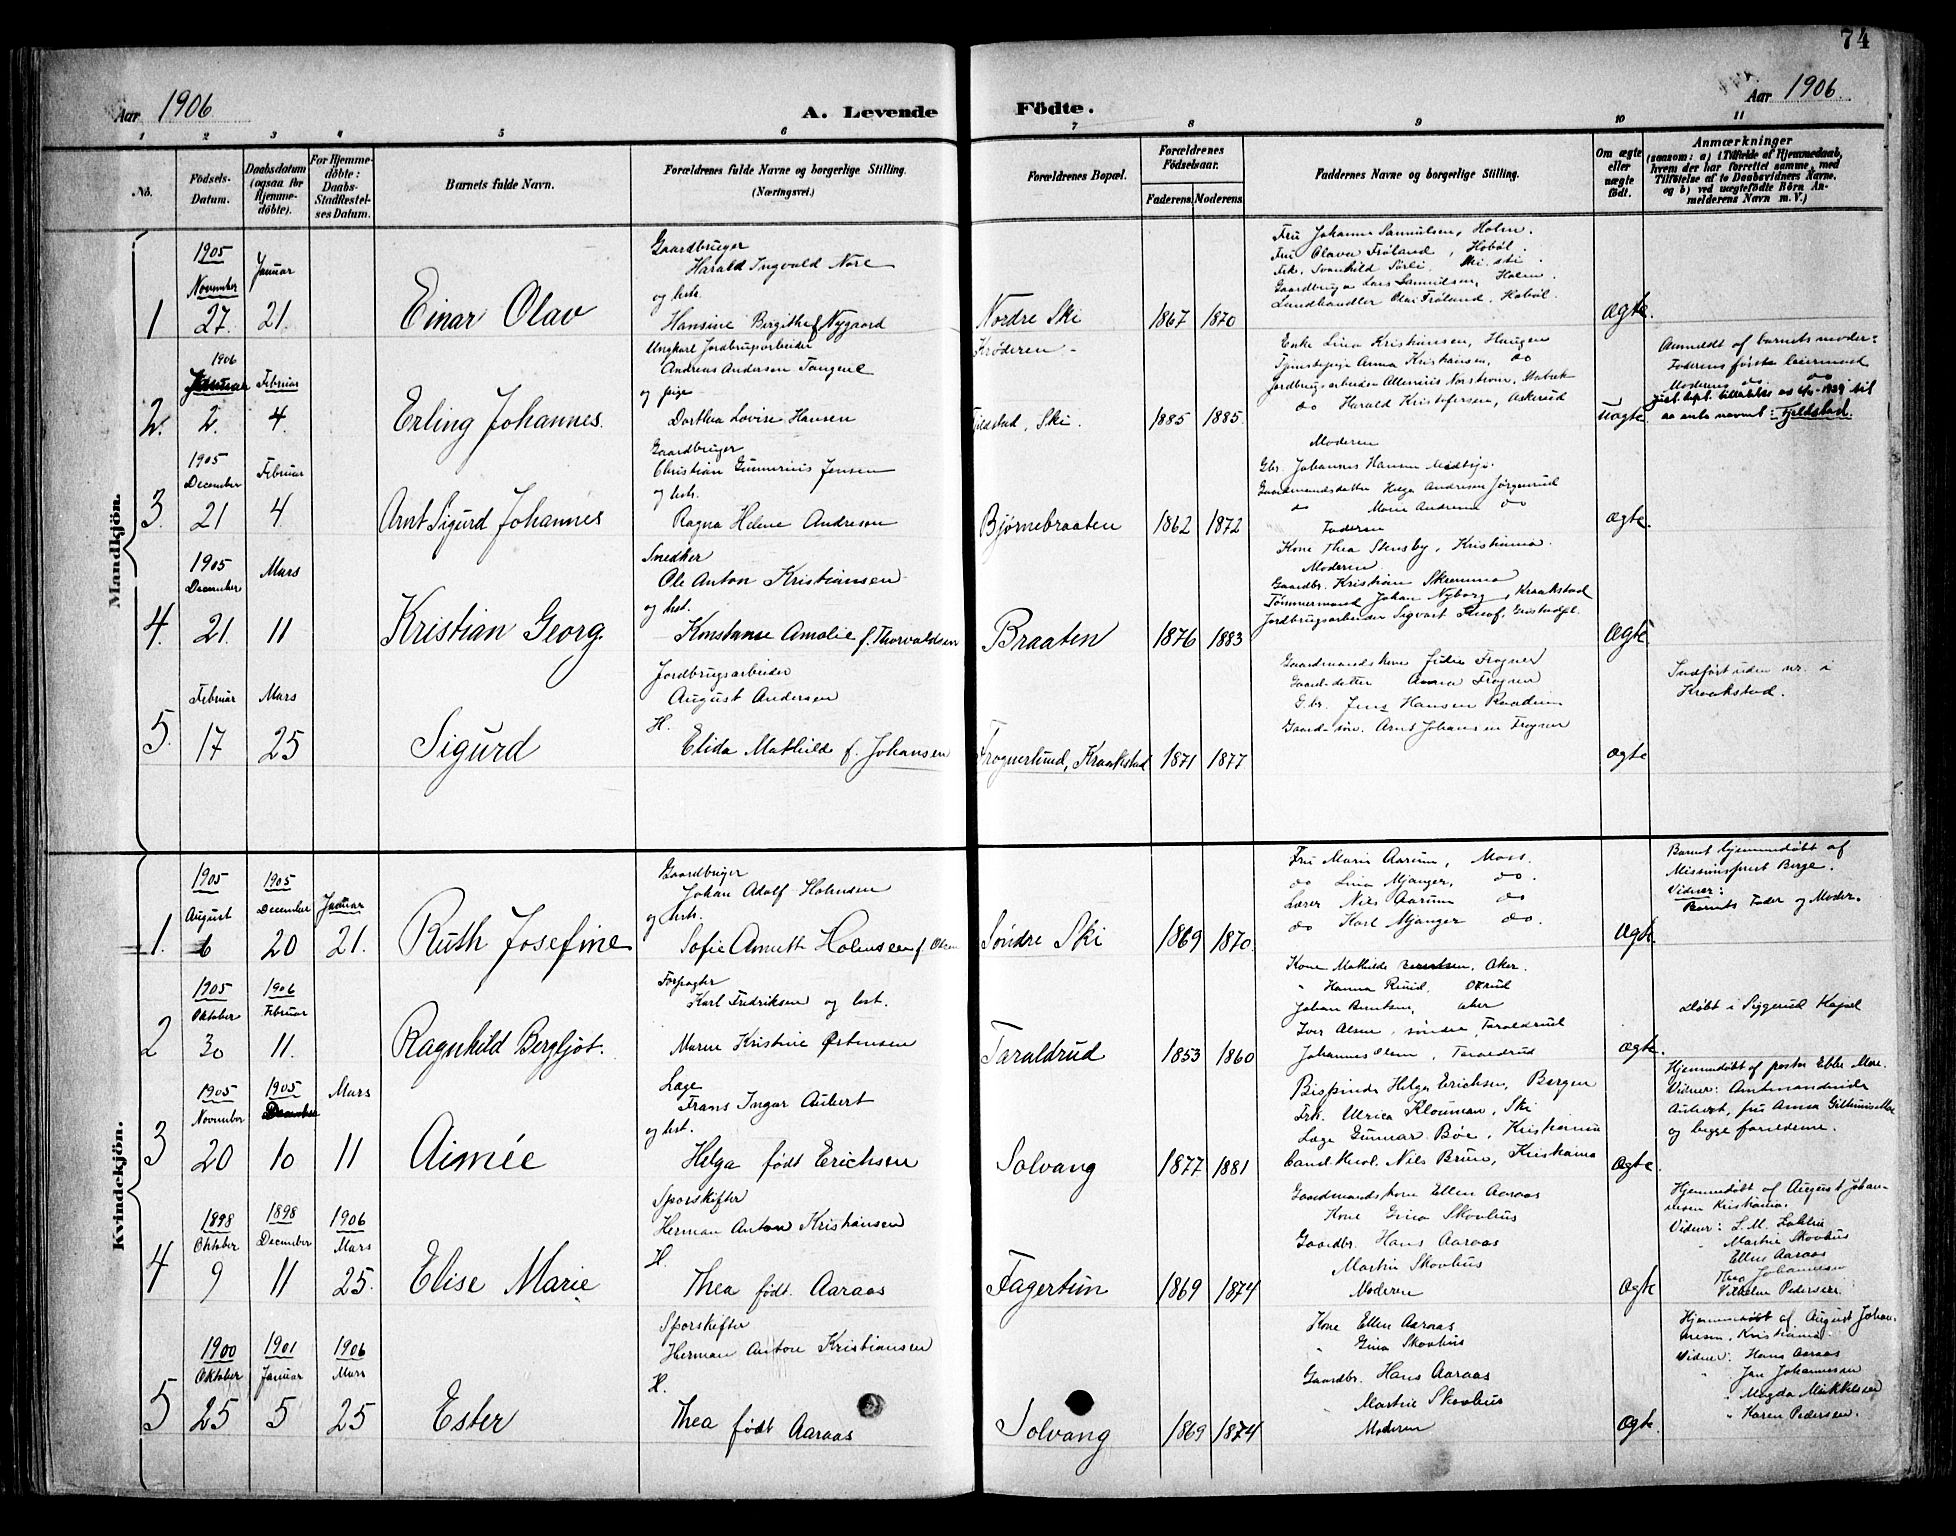 74
Aar 1906
A. Levende Födte.
Aar 1906.
1 2 3 4 5 6 7 8 9 10 11
No.
Födsels-Datum.
Daabsdatum (ogsaa for Hjemme-döbte).
For Hjemme-döbte: Daabs-Stadfæstel-ses Datum.
Barnets fulde Navn.
Forældrenes fulde Navne og borgerlige Stilling. (Næringsvei.)
Forældrenes Bopæl.
Forældrenes Födselsaar.
Faderens. Moderens.
Faddernes Navne og borgerlige Stilling.
Om ægte eller uægte födt.
Anmærkninger
(saasom: a) i Tilfælde af Hjemmedaab, hvem der har forrettet samme, med Tilföielse af to Daabsvidners Navne, og b) ved uægtefödte Börn An-melderens Navn m. V.)
Mandkjön.
1
1905
November
27.
Januar
21.
Einar Olav
Gaardbruger
Harald Ingvald Nore
og hstr.
Hansine Bergithe f Nygaard
Nordre Ski
1867 1870
Fru Johanne Samuelsen, Holm.
Fru Olava Frøland, Hobøl.
Frk. Svanhild Sørli, Ski st.
Gaardbruger Lars Samuelsen, Holm.
Landhandler Olai Frøland, Hobøl.
Ægte.
2.
1906
Januar
2.
Februar
4.
Erling Johannes.
Ungkarl Jordbrugsarbeider
Andreas Andersen Tangene
og pige
Dorthea Lovise Hansen
Krøderen -
Fjeldstad, Ski.
1885 1885
Enke Lina Kristiansen, Haugen
Tjenestepige Anna Kristiansen, do
do Harald Kristofersen, Askerud
Moderen
uægte
Anmeldt af barnets moder:
Faderens første leiermaal
Moderens do do
aa anta navnet: Fjeldstad.
3.
1905
December
21
Februar
4.
Arnt Sigurd Johannes
Gaardbruger
Christian Gunnerius Jensen
og hstr.
Ragna Helene Andresen
Bjørnebraaten
1862 1872
Gbr. Johannes Hansen Midtsjø.
Gaardmandsdatter Helga Andresen Jørgenrud
do Marie Andresen do
Faderen
Ægte.
4.
1905
December
21.
Mars
11
Kristian Georg.
Snedker
Ole Anton Kristiansen
og hst.
Konstanse Amalie f. Thorvaldsen
Braaten
1876 1883
Kone Thea Stensby, Kristiania.
Moderen
Gaardbr. Kristian Skremma
Tømmermand Johan Nyborg, Kraakstad
Ægte
5.
Februar
17
Mars
25
Sigurd
Jordbrugsarbeider
August Andersen
H.
Elida Mathilde f. Johansen
Frognerlund, Kraakstad
1871 1877
Gaardmandskone Julie Frogner
Gaard-datter Anna Frogner
Gbr. Jens Hansen
Gaard-søn. Arnt Johansen Frogner
ægte
Indført uden nr. i
Kraakstad.
Kvindekjön.
1.
1905
August
6
1905
December
20
Januar
21.
Ruth Josefine
Gaardbruger
Johan Adolf Holmsen
og hstr.
Sofie Annette Holmsen f. Olsen
Søndre Ski
1869 1870.
Fru Marie Aarum, Moss.
do Lina Mjanger, do.
Lærer Nils Aarum do
do Karl Mjanger do.
Ægte.
Barnet hjemmedøbt af
Missionsprest Berge.
Vidner:
Barnets Fader og Moder.
2
1905
Oktober
30
1906
Februar
11.
Ragnhild Bergljot.
Forpagter
Karl Fredriksen og hst.
Maren Kristine Østensen
Taraldrud
1853 1860
Kone Mathilde Berntsen, Aker.
" Hanna Ruud,
Johan Berntsen, Aker
Iver Olsen, søndre Taraldrud
Johannes Olsen, Taraldrud
Ægte.
døbt i Siggerud Kapel
3
1905
November
20
1905
December
10
Mars
11
Aimée
Læge
Frans Ingar Aubert
og hst.
Helga født Erichsen
Solvang
1877 1881
Bispinde Helga Erichsen, Bergen
Frk. Ulrica Klouman, Ski
Læge Gunnar Bøe, Kristiania
Cand. theol. Nils Bruun, Kristiania
Ægte.
Hjemmedøbt af pastor Ebbe Moe.
Vidner: Amtmandinde
Aubert, fru Anna
og begge forældrene.
4
1898
Oktober
9
1898
December
11
1906
Mars
25.
Elise Marie
Sporskifter
Herman Anton Kristiansen
H.
Thea født. Aaraas
Fagertun
1869 1874
Gaardmandskone Ellen Aaraas
Kone Gina Skovhus
Gaardbr. Hans Aaraas
Martin Skovhus
Moderen
Ægte
Hjemmedøbt af August Johan-
nesen Kristiania.
Vidner:
" Martin Skovhus
Ellen Aaraas
Thea Johannesen
Vilhelm Pedersen
5
1900
Oktober
25
1901
Januar
5
1906
Mars
25
Ester
Sporskifter
Herman Anton Kristiansen
H.
Thea født Aaraas
Solvang
1869 1874
Kone Ellen Aaraas
" Gina Skovhus
Gaardbr. Hans Aaraas
" Martin Skovhus
Moderen
Ægte.
Hjemmedøbt af August Johan-
nesen, Kristiania.
Vidner: Hans Aaraas
" Jan Johannesen
" Magda Mikkelsen
" Karen Pedersen.